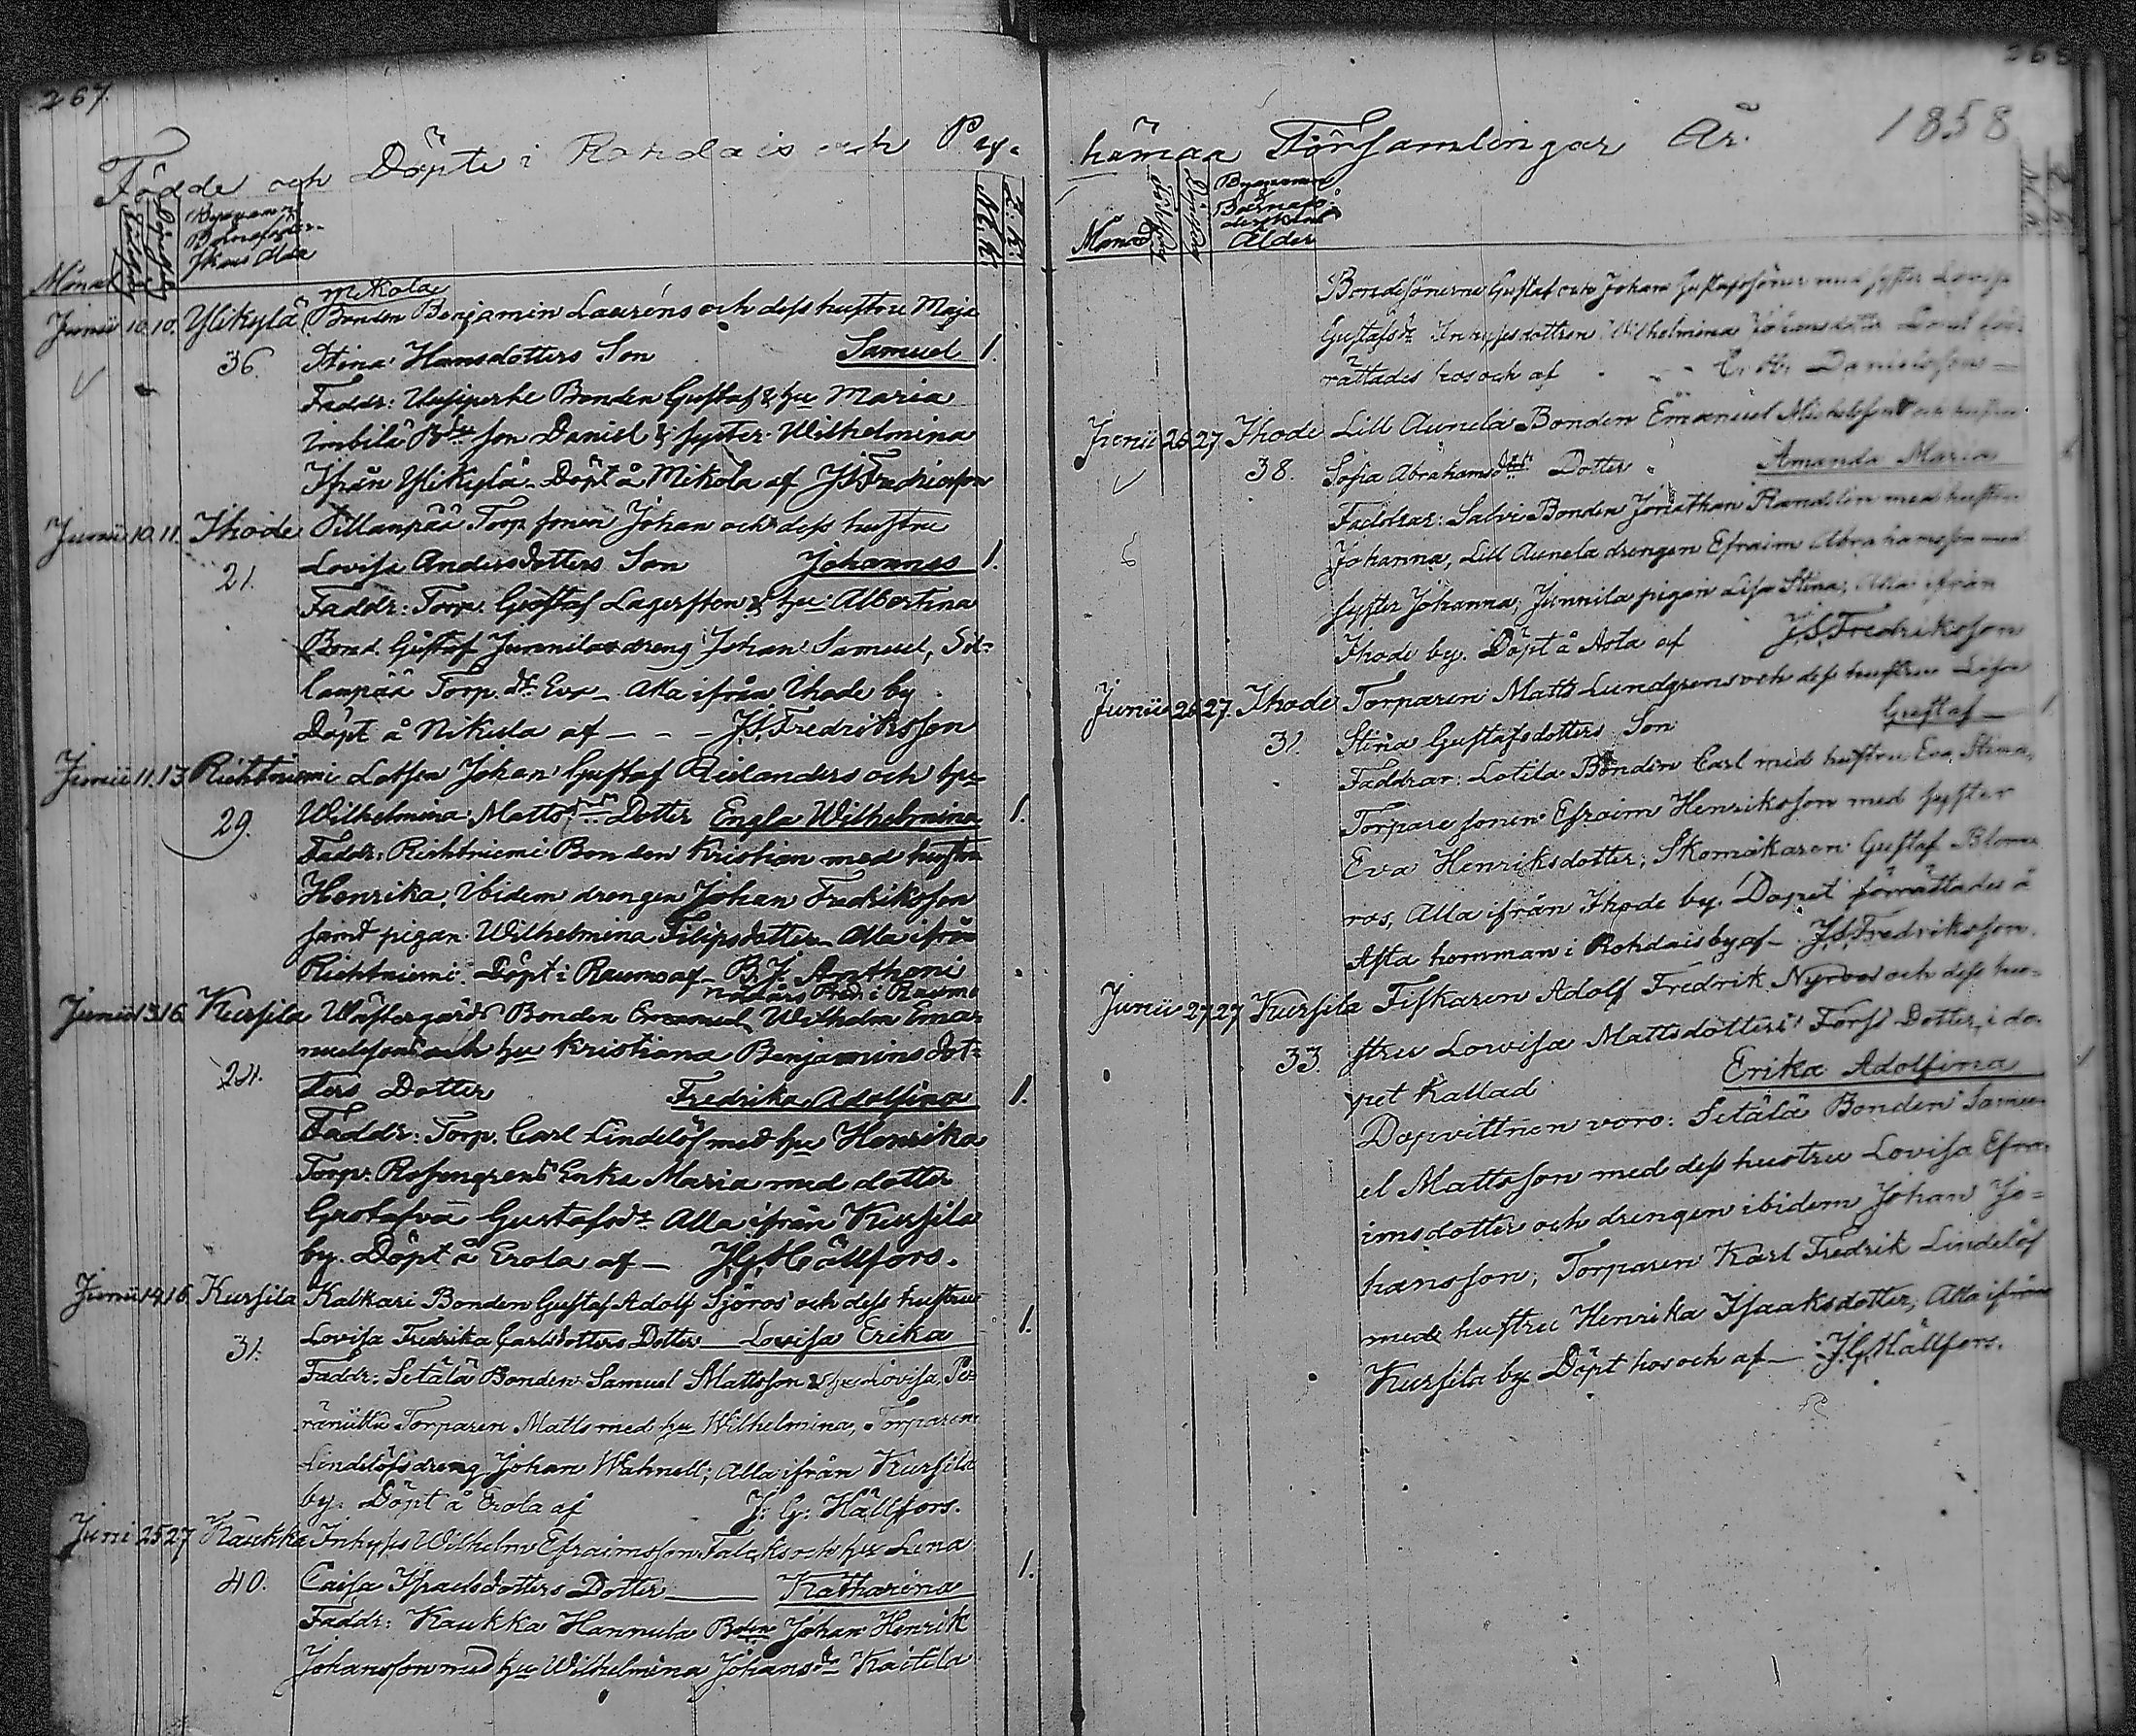 267.
Födde och Döpte i Rohdais och Py-
Månad
Födelsedag
Döpelsedag
Bynamn
Barnaföder-
skans Ålder
M.K.
Q.K.
Junii 10. 10. Ylikylä Mikola Bonden Benjamin Lauréns och dess hustru Maja
36. Stina Hansdotters Son Samuel 1.
Faddr: Uusiperhe Bonden Gustaf & hu Maria
Imbilä Bde son Daniel & syster Wilhelmina
Ifrån Ylikylä. Döpt å Mikola af J.S. Fredriksson
Junii 10. 11. Ihode Sillanpää Torp. sonen Johan och dess hustru
21. Lovisa Andersdotters Son Johannes 1.
Faddr: Torp. Gustaf Lagerstön & hu Albertina
Bond. Gustaf Junnila dreng Johan Samuel, Sil-
lanpää Torp. dr Eva – Alla ifrån Ihode by
Döpt å Nikula af – – – J.S. Fredriksson
Junii 11. 13 Riohtniemi Lotsen Johan Gustaf Relanders och hu
29. Wilhelmina Mattsdrs Dotter Engla Wilhelmina 1.
Faddr: Riohtniemi Bonden Kristian med hustru
Henrika, ibidem drengen Johan Fredriksson
samt pigan Wilhelmina Filipsdotter – Alla ifrån
Riohtniemi. Döpt i Raumo af – B.J. Anthoni
Pred: i Raumo
Junii 13 16. Kursila Wästergårds Bonden Emanuel Wilhelm Ema-
24. nuelssons och hu Kristiana Benjamins dot-
ters Dotter Fredrika Adolfina 1.
Faddr: Torp. Carl Lindelöf med hu Henrika
Torp. Rosengrens Enka Maria med dotter
Gustafva Gustafsdr. Alla ifrån Kursila
by. Döpt å Erola af – J.G. Hällfors.
Junii 14 16. Kursila Kalkari Bonden Gustaf Adolf Sjöros och dess hustru
31. Lovisa Fredrika Carlsdotters Dotter Lovisa Erika 1.
Faddr: Setälä Bonden Samuel Mattsson & hu Lovisa, Pe-
räniittu Torparen Matts med hu Wilhelmina, Torparen
Lindelöfs dreng Johan Wahnell; Alla ifrån Kursila
by. Döpt å Erola af J: G: Hällfors.
Juni 25 27 Kaukka Inhyss Wilhelm Efraimsson Falcks och hu Lena
40. Caisa Israelsdotters Dotter – Katharina 1.
Faddr: Kaukka Hannula Bden Johan Henrik
Johansson med hu Wilhelmina Johansdr Kaitila
268
hämaa Församlingar År. 1858
Månad
Födelsedag
Döpelsedag
Bynamn
Barnafö-
derskans
Ålder
M.K.
Q.K.
Bondesönerne Gustaf och Johan Gustafssöner med syster Lovisa
Gustafsdr Inhysesdottren Wilhelmina Johansdotter Dopet för-
rättades hos och af Danielsson –
Junii 26 27. Ihode Lill Aunela Bonden Emanuel Michelssons och hustru
38. Sofia Abrahamsdrs Dotter Amanda Maria
Faddrar: Salvi Bonden Jonathan Randelin med hustru
Johanna, Lill Aunela drengen Efraim Abrahamsson med
syster Johanna, Junnila pigan Lisa Stina; Alla ifrån
Ihode by. Döpt å Asta af J.S. Fredriksson
Junii 26 27. Ihode Torparen Matts Lundgrens och dess hustru Lisa
31. Stina Gustafsdotters Son Gustaf – 1
Faddrar: Lotila Bonden Carl med hustru Eva Stina,
Torpare sonen Efraim Henriksson med syster
Eva Henriksdotter; Skomakaren Gustaf Blom-
ros, Alla ifrån Ihode by. Dopet förrättades å
Asta hemman i Rohdais by af – J.S. Fredriksson.
Junii 27 27 Kursila Fiskaren Adolf Fredrik Nyroos och dess hu-
33. stru Lowisa Mattsdotters Fors Dotter, i do-
pet Kallad Erika Adolfina 1
Dopvittnen voro: Setälä Bonden Samu-
el Mattsson med dess hustru Lovisa Efra-
imsdotter och drengen ibidem Johan Jo-
hansson; Torparen Karl Fredrik Lindelöf
med hustru Henrika Isaaksdotter, Alla ifrån
Kursila by. Döpt hos och af – J.G. Hällfors.